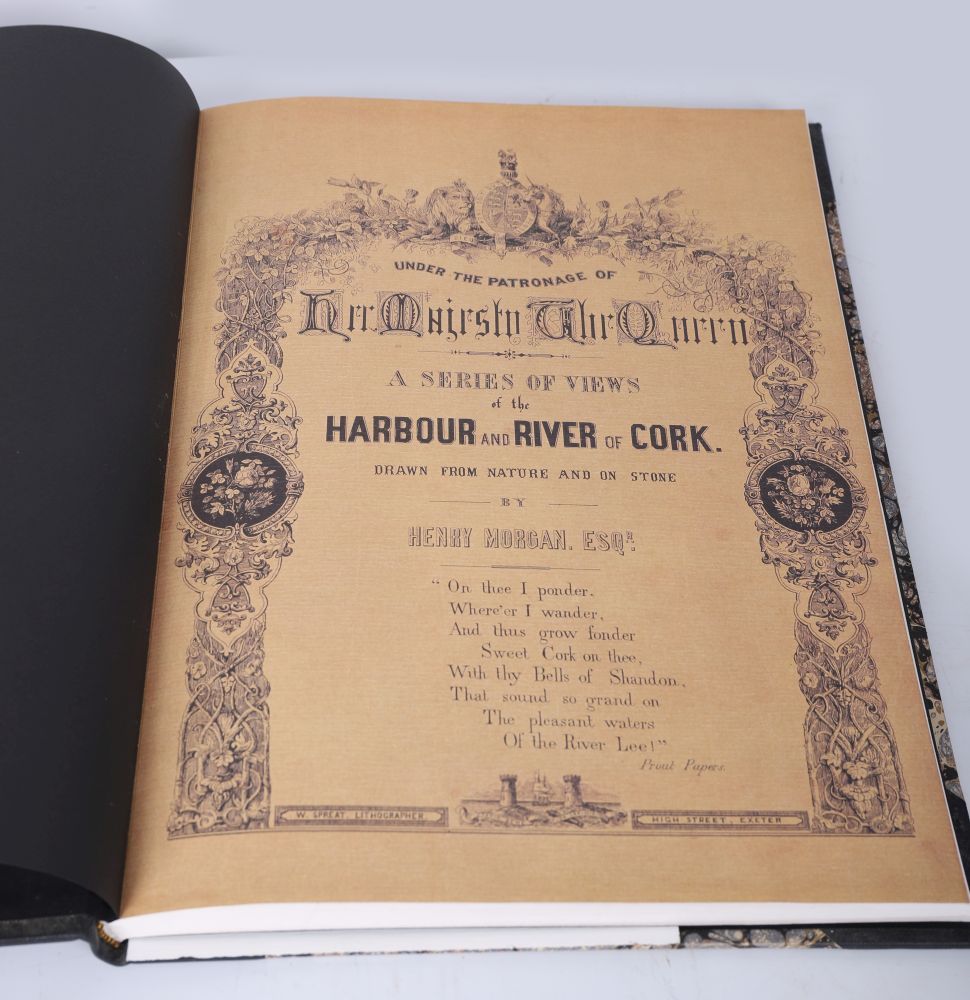 UNDER THE PATRONAGE OF
Her Majesty The Queen
A SERIES OF VIEWS
of the
HARBOUR AND RIVER OF CORK.
DRAWN FROM NATURE AND ON STONE
BY
HENRY MORGAN. ESQR.
"On thee I ponder,
Where'er I wander,
And thus grow fonder
Sweet Cork on thee,
With thy Bells of Shandon,
That sound so grand on
The pleasant waters
Of the River Lee!"
Prout Papers.
W. SPREAT, LITHOGRAPHER
HIGH STREET, EXETER